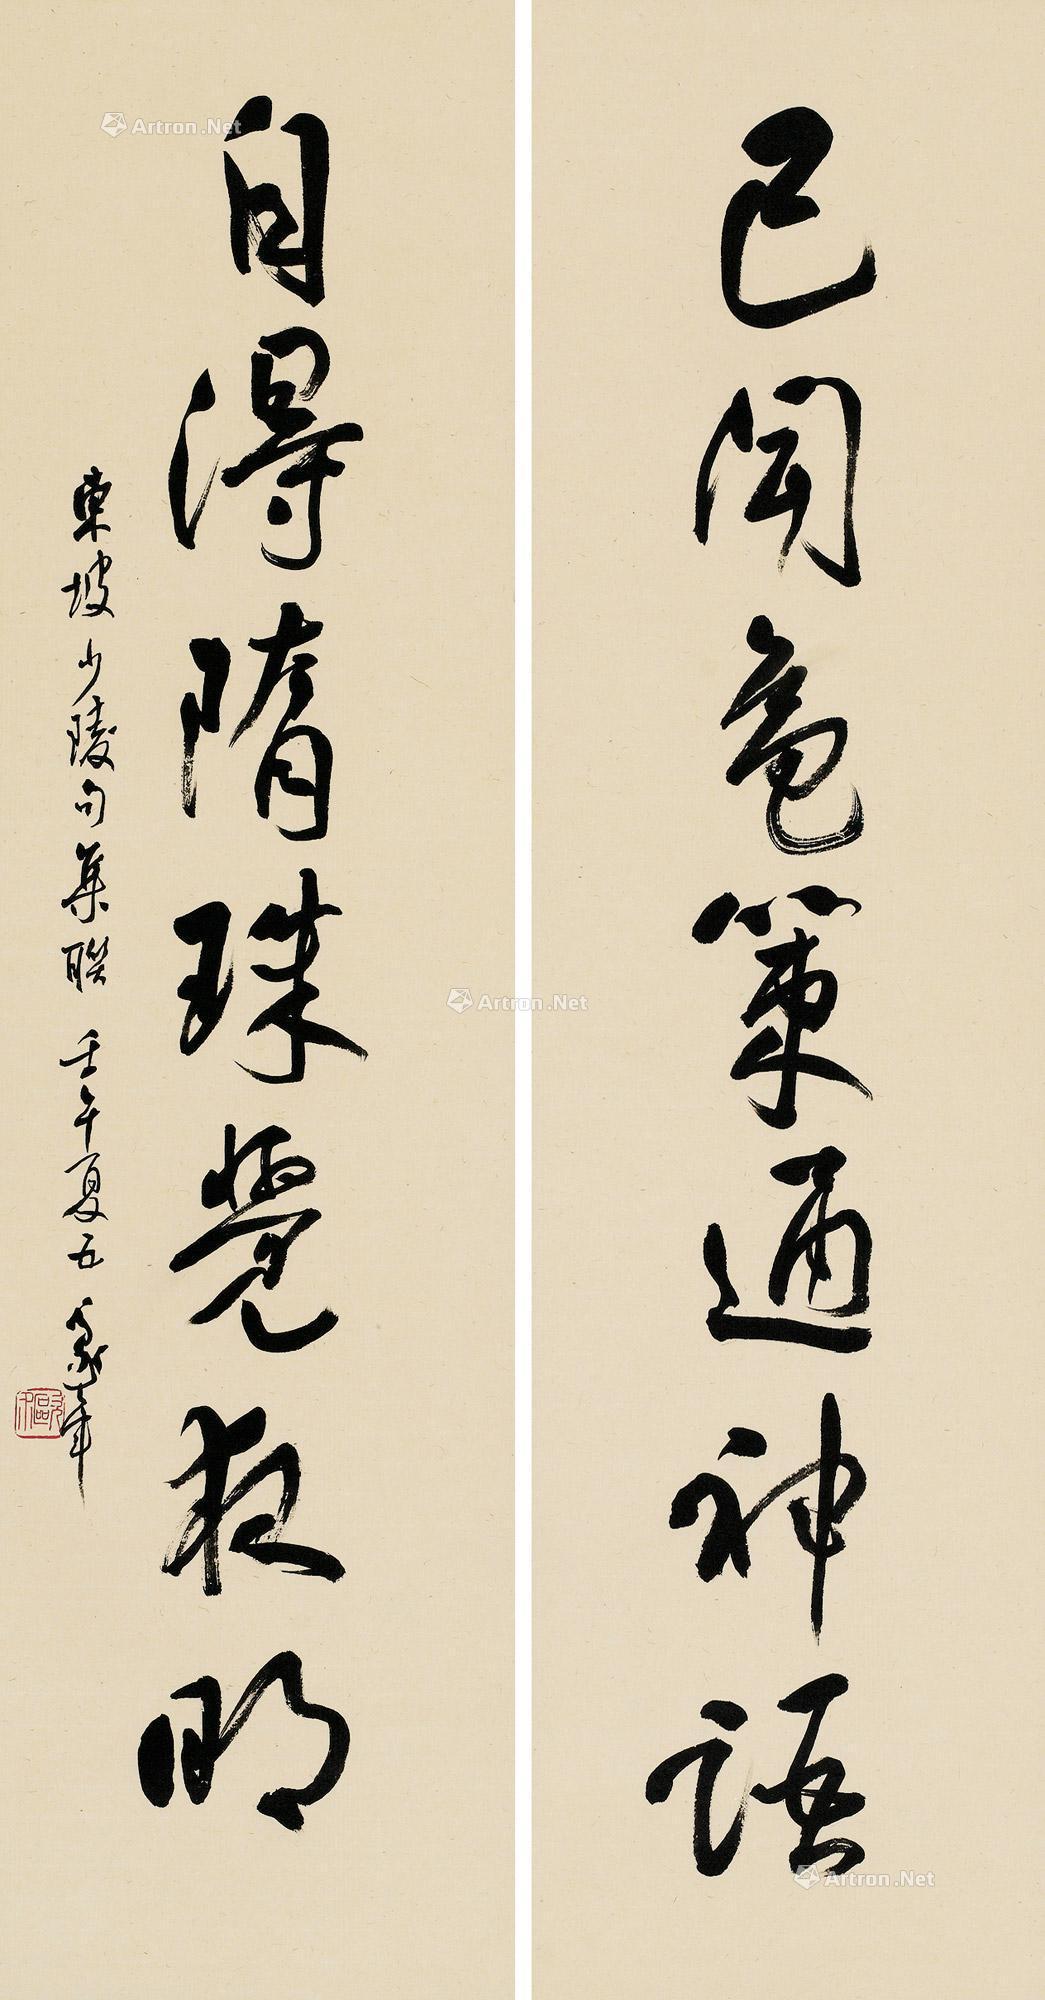 已聞龜策通神語
自得隋珠覺夜明
東坡少陵句集聯 壬午夏五 豪年
Artron.Net
Artron.Net
Artron.Net